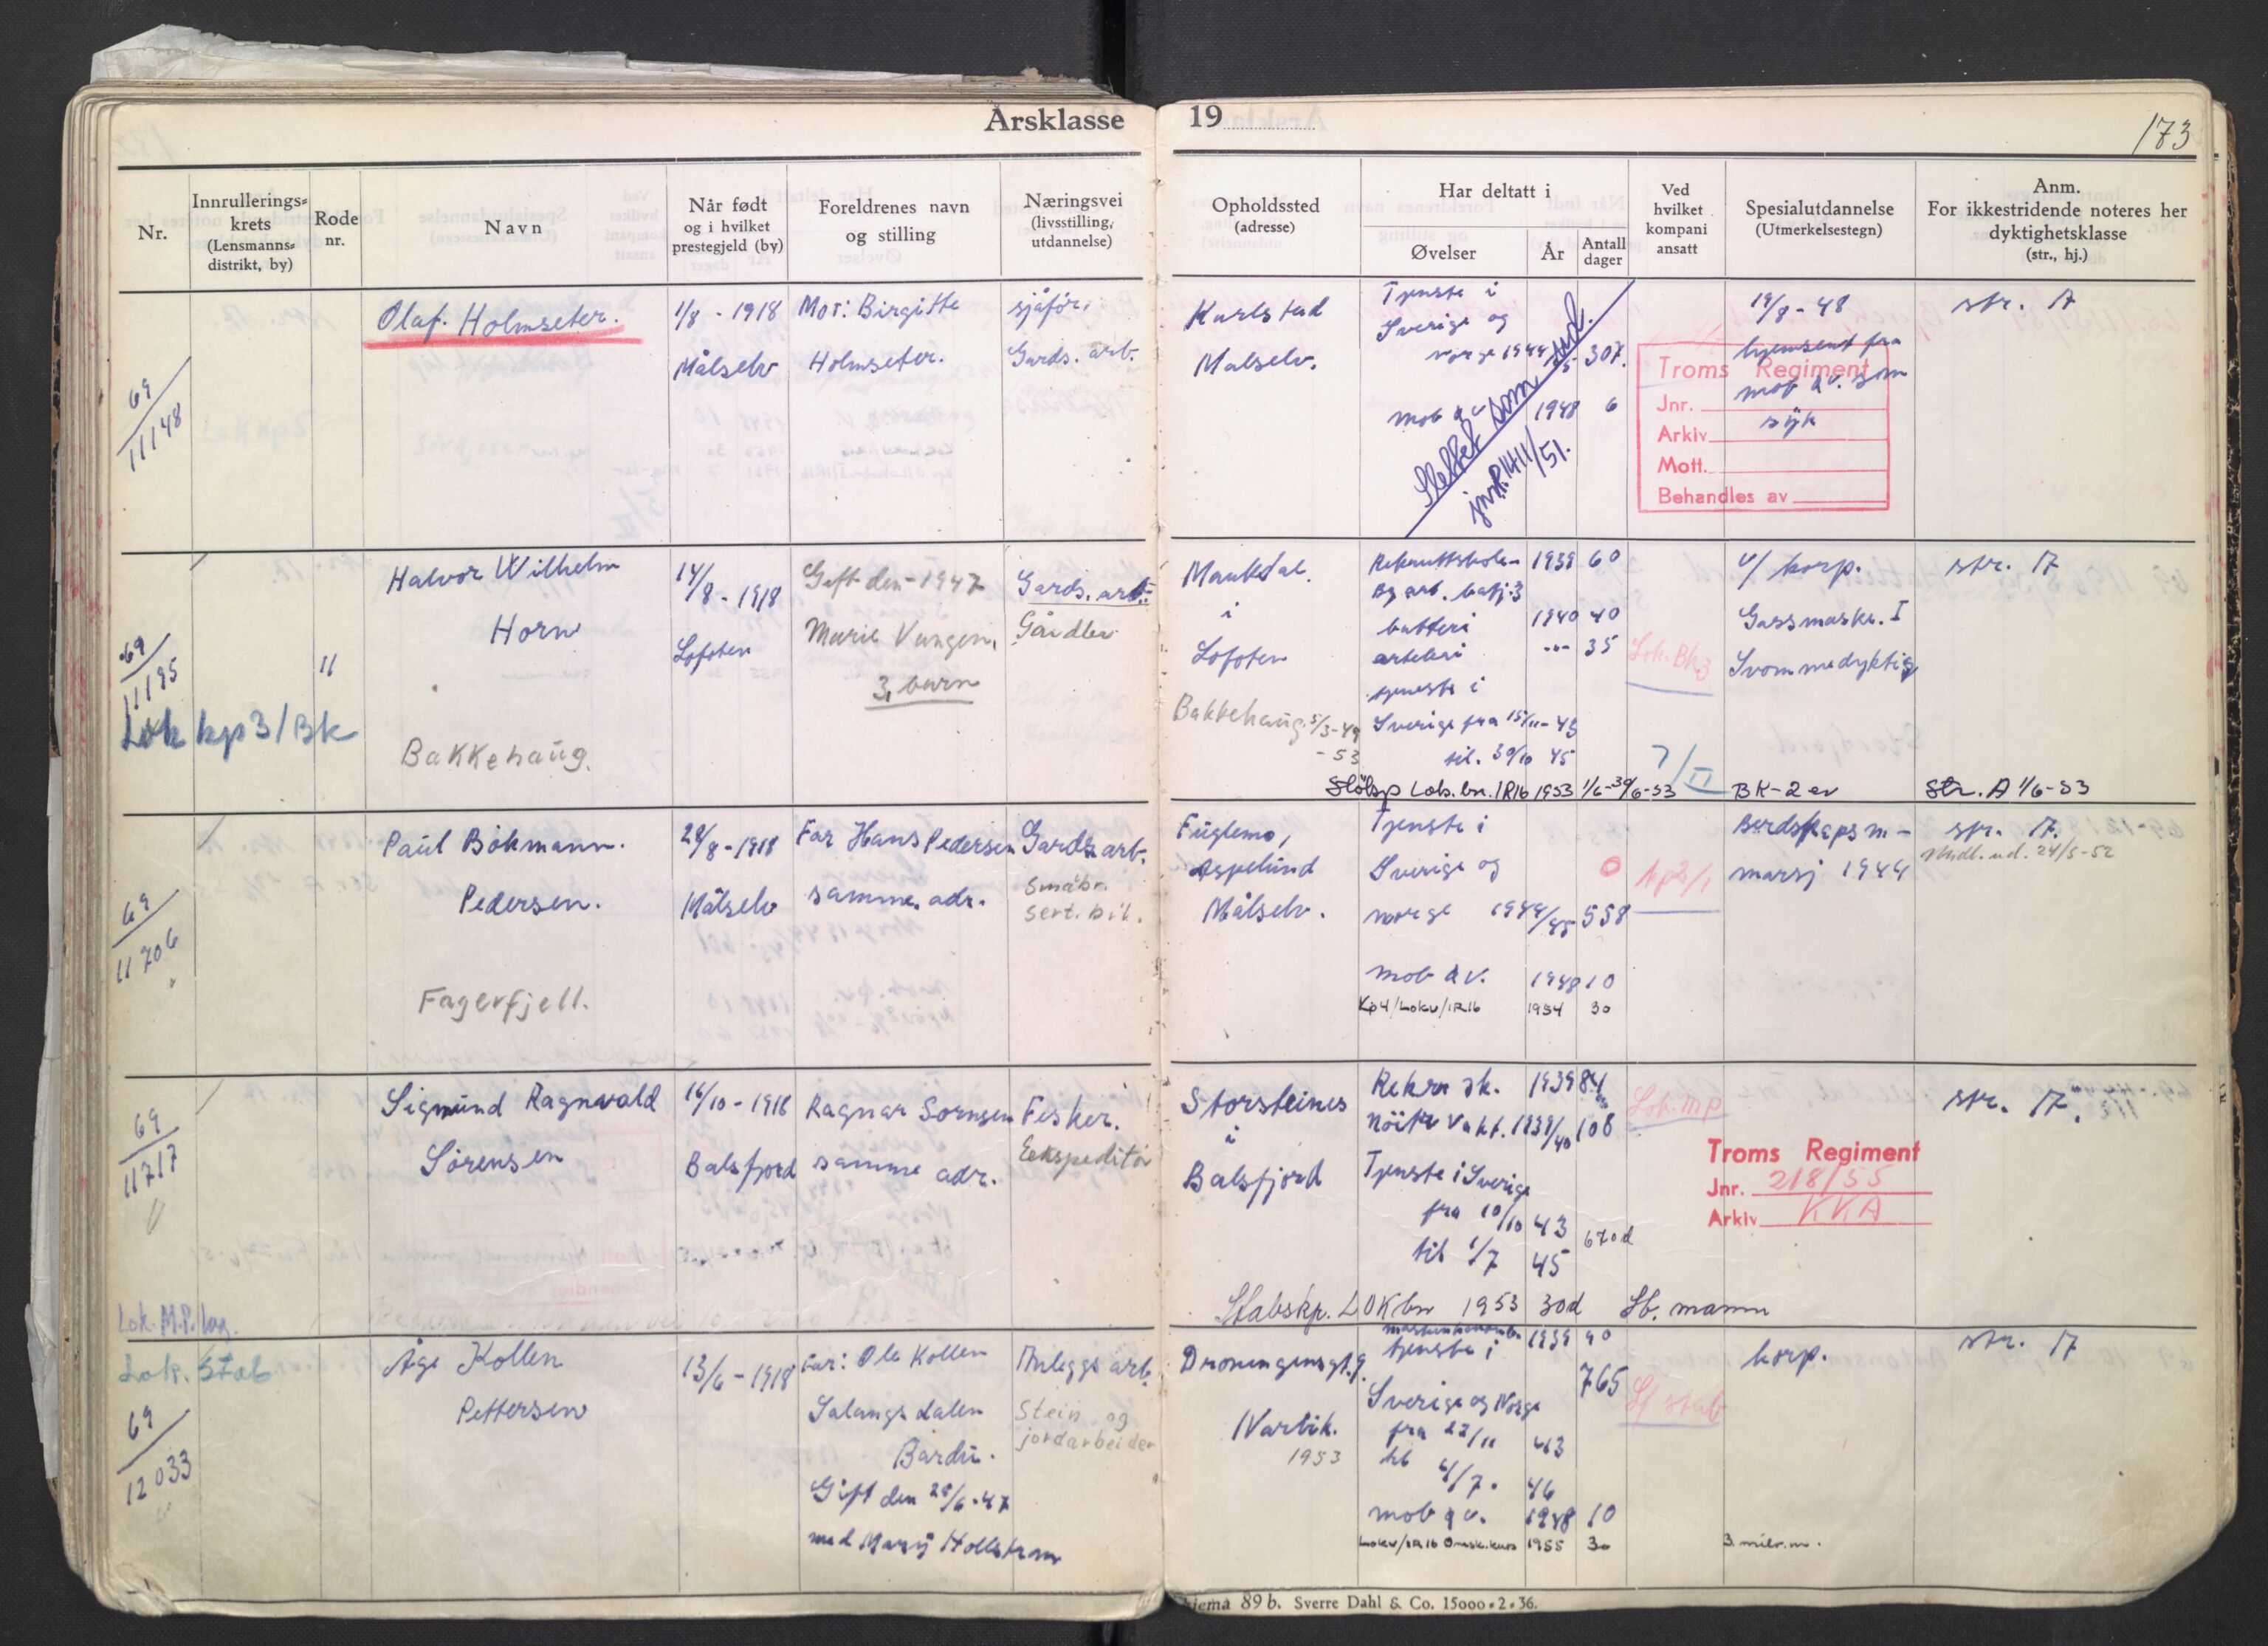 Årsklasse 19
173
Nr.
Innrullerings=
krets
(Lensmanns=
distrikt, by)
Rode
nr.
Navn
Når født
og i hvilket
prestegjeld (by)
Foreldrenes navn
og stilling
Næringsvei
(livsstilling,
utdannelse)
Opholdssted
(adresse)
Har deltatt i
Øvelser
År
Antall
dager
Ved
hvilket
kompani
ansatt
Spesialutdannelse
(Utmerkelsestegn)
Anm.
For ikkestridende noteres her
dyktighetsklasse
(str., hj.)
69
11148
Olaf Holmseter.
1/8 - 1918
Målselv
Mor: Birgitte
Holmseter.
sjåfør.
Gards. arb.
Karlstad
Målselv.
Tjenste i
Sverige og
norge 1944/45 307.
mob av 1948 6
Slettet som
jnr. 1411/51.
19/8 - 48
hjemsent fra
mob av. som
syk
Troms Regiment
Jnr.
Arkiv
Mott.
Behandles av
str. A
69
11195
Lok kp 3/Bk
11
Halvor Wilhelm
Horn
Bakkehaug.
14/8 - 1918
Lofoten
Gift den - 1947
Marie Vangen,
3 barn
Gards. arb.
Gårdbr.
Maukdal
i
Lofoten
Bakkehaug. 5/3-49
- 53
Rekruttskolen 1939 60
batteri 1940 40
arteleri -"- 35
tjeneste i
Sverige fra 15/11-43
til. 30/10 45
Lok. bn. IR16 1953 1/6-30/6-53
Lok. Bk 3
7/II
v/ korp.
Gassmaskr. I
Svommedyktig
BK-2 er
str. A
Str. A 1/6-53
69
11706
Paul Bokmann.
Pedersen.
Fagerfjell.
28/8 - 1918
Målselv
Far Hans Pedersen
samme. adr.
Gards arb.
Småbr.
sert. bil.
Fuglemo,
Aspelund
Målselv.
Tjenste i
Sverige og
norge 1944/45 558
mob av. 1948 10
Kp4/Lokv/IR16 1954 30
0
kp 2/1
Berdskapsm-
marsj 1944
str. A.
24/5-52
69
11717
Lok. M.P. lag.
Sigmund Ragnvald
Sørensen
16/10 - 1918
Balsfjord
Ragnar Sornsen
samme adr.
Fesker.
Eekspeditør
Storsteines
i
Balsfjord
Rekru sk. 1939 84
Nöitr Vakt. 1939/40 108
Tjenste i Sverige
fra 10/10 43
til 1/7 45
670 d
Stabskp. LOKbn 1953 30d Sb. mann
Lok. MP
Troms Regiment
Jnr. 218/55
Arkiv KKA
str. A.
Lok. Stab
69
12033
Åge Kollen
Pettersen
13/6 - 1918
Far: Ole Kollen
Salangsdalen
Bardu.
Gift den 28/6-47
med Mary Hollstrom
Anleggs arb.
Stein og
jordarbeider
Droningensgt. 9.
Narvik.
1953
1939 90
tjenste i
765
Sverige og Norge
fra 22/11 43
til 4/7. 46
mob av. 1948 10
Lokv/IR16 Omsk.kurs 1955 30
stab
korp.
3. milr. m.
str. A
89 b. Sverre Dahl & Co. 15000-2-36.